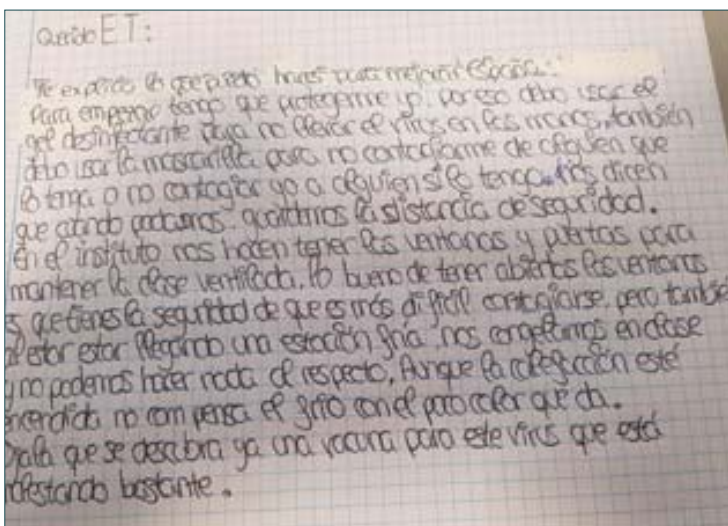 Querido ET:
Te explico lo que puedo hacer para mejorar España:
Para empezar tengo que protegerme yo, por eso debo usar el
gel desinfectante para no llevar el virus en las manos, también
debo usar la mascarilla para no contagiarme de alguien que
lo tenga o no contagiar yo a alguien si lo tengo. Nos dicen
que cuando podamos guardemos la distancia de seguridad.
En el instituto nos hacen tener las ventanas y puertas para
mantener la clase ventilada. Lo bueno de tener abiertas las ventanas
es que tienes la seguridad de que es más difícil contagiarse, pero tambié
al estar estar llegando una estación fría nos congelamos en clase
y no podemos hacer nada al respecto. Aunque la calefacción esté
encendida no compensa el frío con el poco calor que da.
Ojala que se descubra ya una vacuna para este virus que está
molestando bastante.